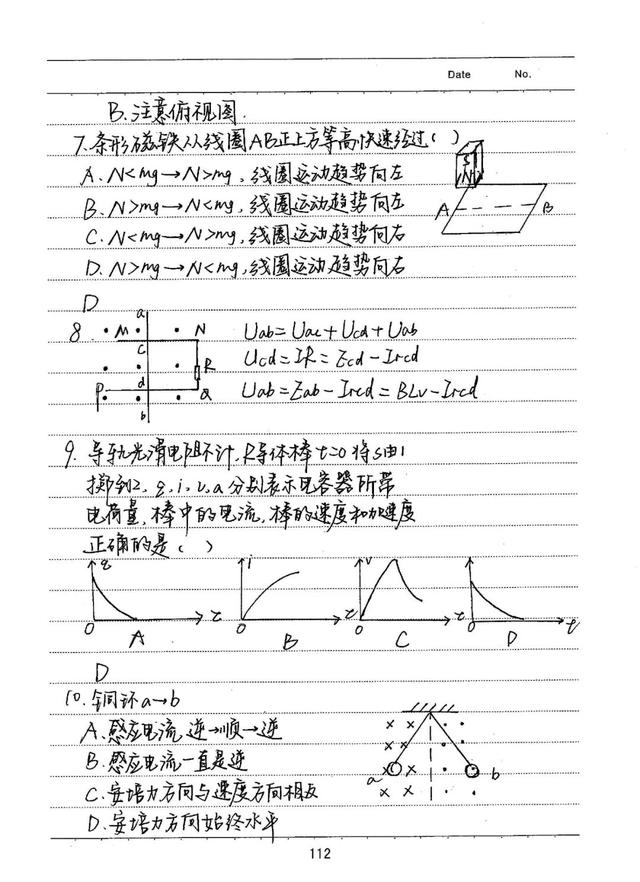 Date No.
B.注意俯视图.
7.条形磁铁从线圈AB正上方等高快速经过( )
A.N<mg→N>mg,线圈运动趋势向左
B.N>mg→N<mg,线圈运动趋势向左
C.N<mg→N>mg,线圈运动趋势向右
D.N>mg→N<mg,线圈运动趋势向右
S
N
A B
D
8.
a
M N
c
R
P d Q
b
Uab=Uac+Ucd+Uab
Ucd=IR=Ecd-Ircd
Uab=Eab-Ircd=BLv-Ircd
9.导轨光滑电阻不计,R导体棒t=0将S由1
掷到2,q,i,v,a分别表示电容器所带
电荷量,棒中的电流,棒的速度和加速度
正确的是( )
q i v
0 t 0 t 0 t 0 t
A B C D
D
10.铜环a→b
A.感应电流 逆→顺→逆
B.感应电流一直是逆
C.安培力方向与速度方向相反
D.安培力方向始终水平
a b
112